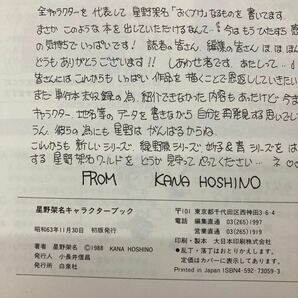 全キャラクターを代表して 星野架名「おくづけ」なるものを書いてます。
まさか このような本を出していただけるなんて…今はもうひたすら感
の気持でいっぱいです！ 読者の皆さん、編集の皆さん ほ ほ ほん
どうもありがとうございます!! しあわせ者です。あたしって。
皆さんには これからもいっぱい作品を描くことで恩返ししていきたい
また単行本未収録の為、紹介できなかった内容もあったけど 今ま
キャラクター、地名等のデータを書きながら自分を再発見する思いでし
うん。彼らの為にも 星野はがんばるからね。
これからも新しいシリーズ、緑野原シリーズ、妙子&青シリーズをは
する 星野架名ワールドを どうか見守って下さい…ネ
FROM KANA HOSHINO
星野架名キャラクターブック
昭和63年11月30日 初版発行
著者 星野架名 ©1988 KANA HOSHINO
発行人 小長井信昌
発行所 白泉社
〒101 東京都千代田区西神田3-6-4
電話 編集直通 03(265)1997
営業直通 03(265)1919
印刷・製本 大日本印刷株式会社
●乱丁・落丁はおとりかえします。
定価はカバーに表示してあります。
Printed in Japan ISBN4-592-73059-3